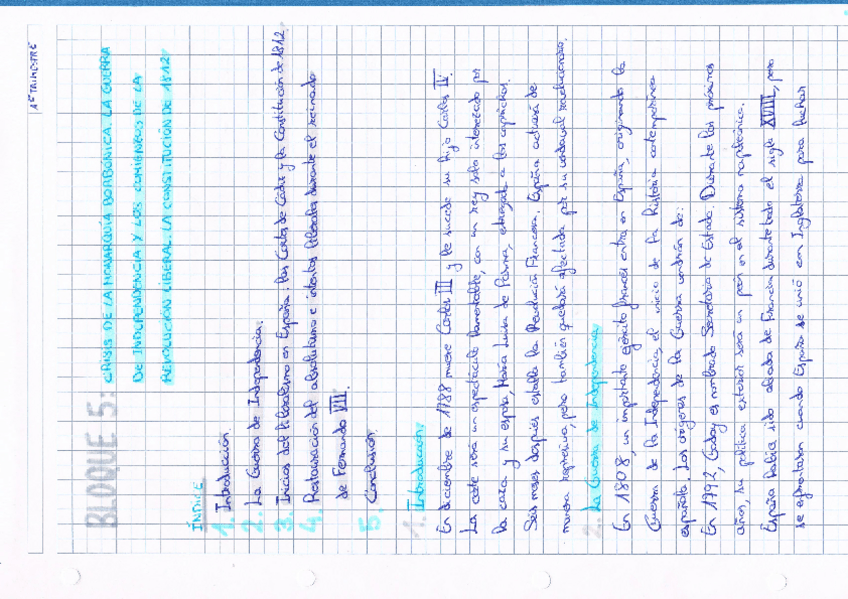 1er TRIMESTRE
BLOQUE 5: CRISIS DE LA MONARQUÍA BORBÓNICA. LA GUERRA
DE INDEPENDENCIA Y LOS COMIENZOS DE LA
REVOLUCIÓN LIBERAL. LA CONSTITUCIÓN DE 1812
ÍNDICE
1. Introducción.
2. La Guerra de Independencia.
3. Inicios del liberalismo en España: las Cortes de Cádiz y la Constitución de 1812.
4. Restauración del absolutismo e intentos liberales durante el reinado
de Fernando VII.
5. Conclusión.
1. Introducción.
En diciembre de 1788 muere Carlos III y le sucede su hijo Carlos IV.
La corte será un espectáculo lamentable, con un rey solo interesado por
la caza y su esposa, María Luisa de Parma, entregada a los caprichos.
Seis meses después estalla la Revolución Francesa. España actuará de
manera represiva, pero también quedará afectada por su vendaval revolucionario.
2. La Guerra de Independencia.
En 1808, un importante ejército francés entra en España, originando la
Guerra de la Independencia, el inicio de la historia contemporánea
española. Los orígenes de la Guerra vendrían de:
En 1792, Godoy es nombrado Secretario de Estado. Durante los próximos
años, su política exterior será un peón en el sistema napoleónico.
España había sido aliada de Francia durante todo el siglo XVIII, pero
se enfrentaron cuando España se unió con Inglaterra para luchar